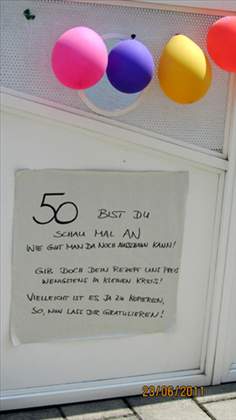 50 BIST DU
SCHAU MAL AN
WIE GUT MAN DA NOCH AUSSEHEN KANN!
GIB DOCH DEIN REZEPT UNS PREIS
WENIGSTENS IM KLEINEN KREIS!
VIELLEICHT IST ES JA ZU KOPIEREN,
SO, NUN LASS DIR GRATULIEREN!
23/06/2011